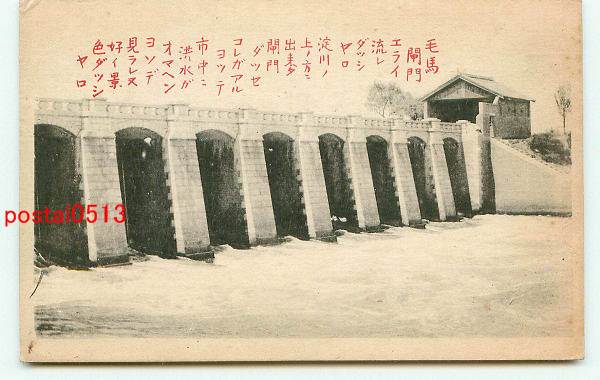 毛馬
閘門
エライ
流レ
ダッシ
ヤロ
淀川ノ
上ノ方ニ
出来タ
閘門
ダッセ
コレガアル
ヨッテ
市中ニ
洪水ガ
オマヘン
ヨソデ
見ラレヌ
好イ景
色ダッシ
ヤロ
postal0513